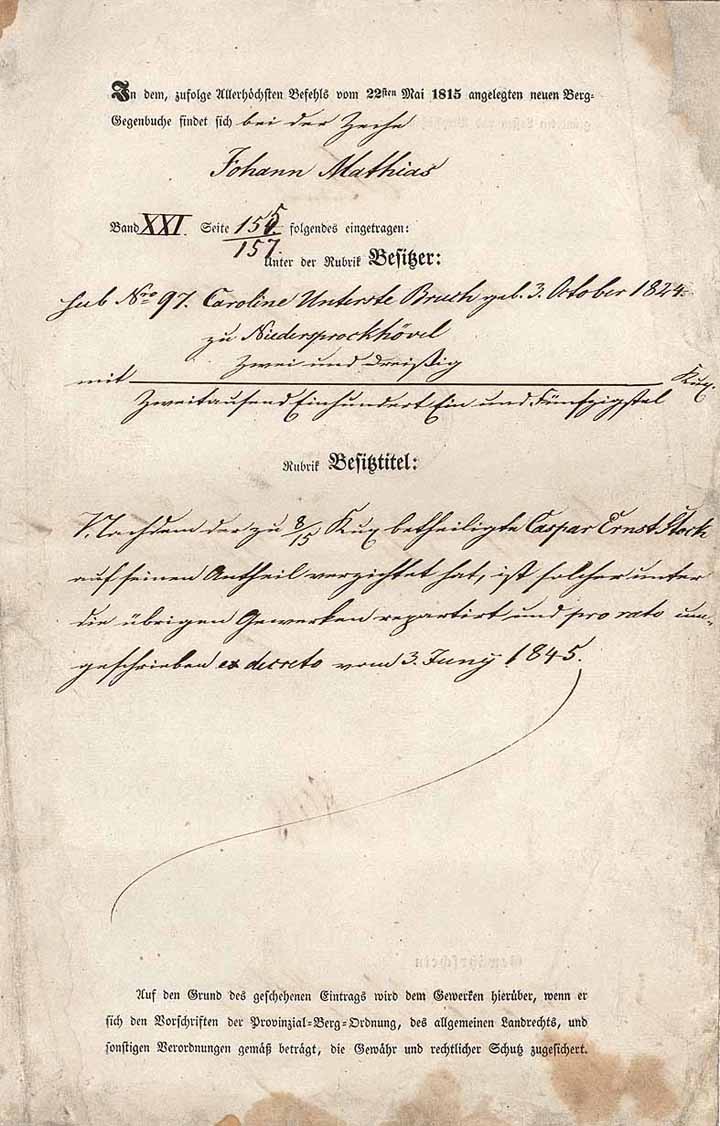 In dem, zufolge Allerhöchsten Befehls vom 22sten Mai 1815 angelegten neuen Berg-
Gegenbuche findet sich bei der Zeche
Johann Mathias
Band XXI. Seite 155 folgendes eingetragen:
157.
Unter der Rubrik Besitzer:
sub Nro 97. Caroline Unterste Bruch geb. 3. October 1824.
zu Niedersprockhövel
Zwei und dreißig
mit Kux.
Zweitausend Einhundert Ein und Fünfzigstel
Rubrik Besitztitel:
Nachdem der zu 8/15 Kux betheiligte Caspar Ernst Stock
auf seinen Antheil verzichtet hat, ist solcher unter
die übrigen Gewerken repartirt und pro rato um-
geschrieben ex decreto vom 3. Juny 1845.
Gewährschein
Auf den Grund des geschehenen Eintrags wird dem Gewerken hierüber, wenn er
sich den Vorschriften der Provinzial-Berg-Ordnung, des allgemeinen Landrechts, und
sonstigen Verordnungen gemäß beträgt, die Gewähr und rechtlicher Schutz zugesichert.